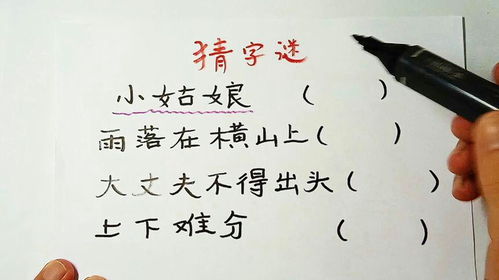 猜字谜
小姑娘 ( )
雨落在横山上( )
大丈夫不得出头( )
上下难分 ( )